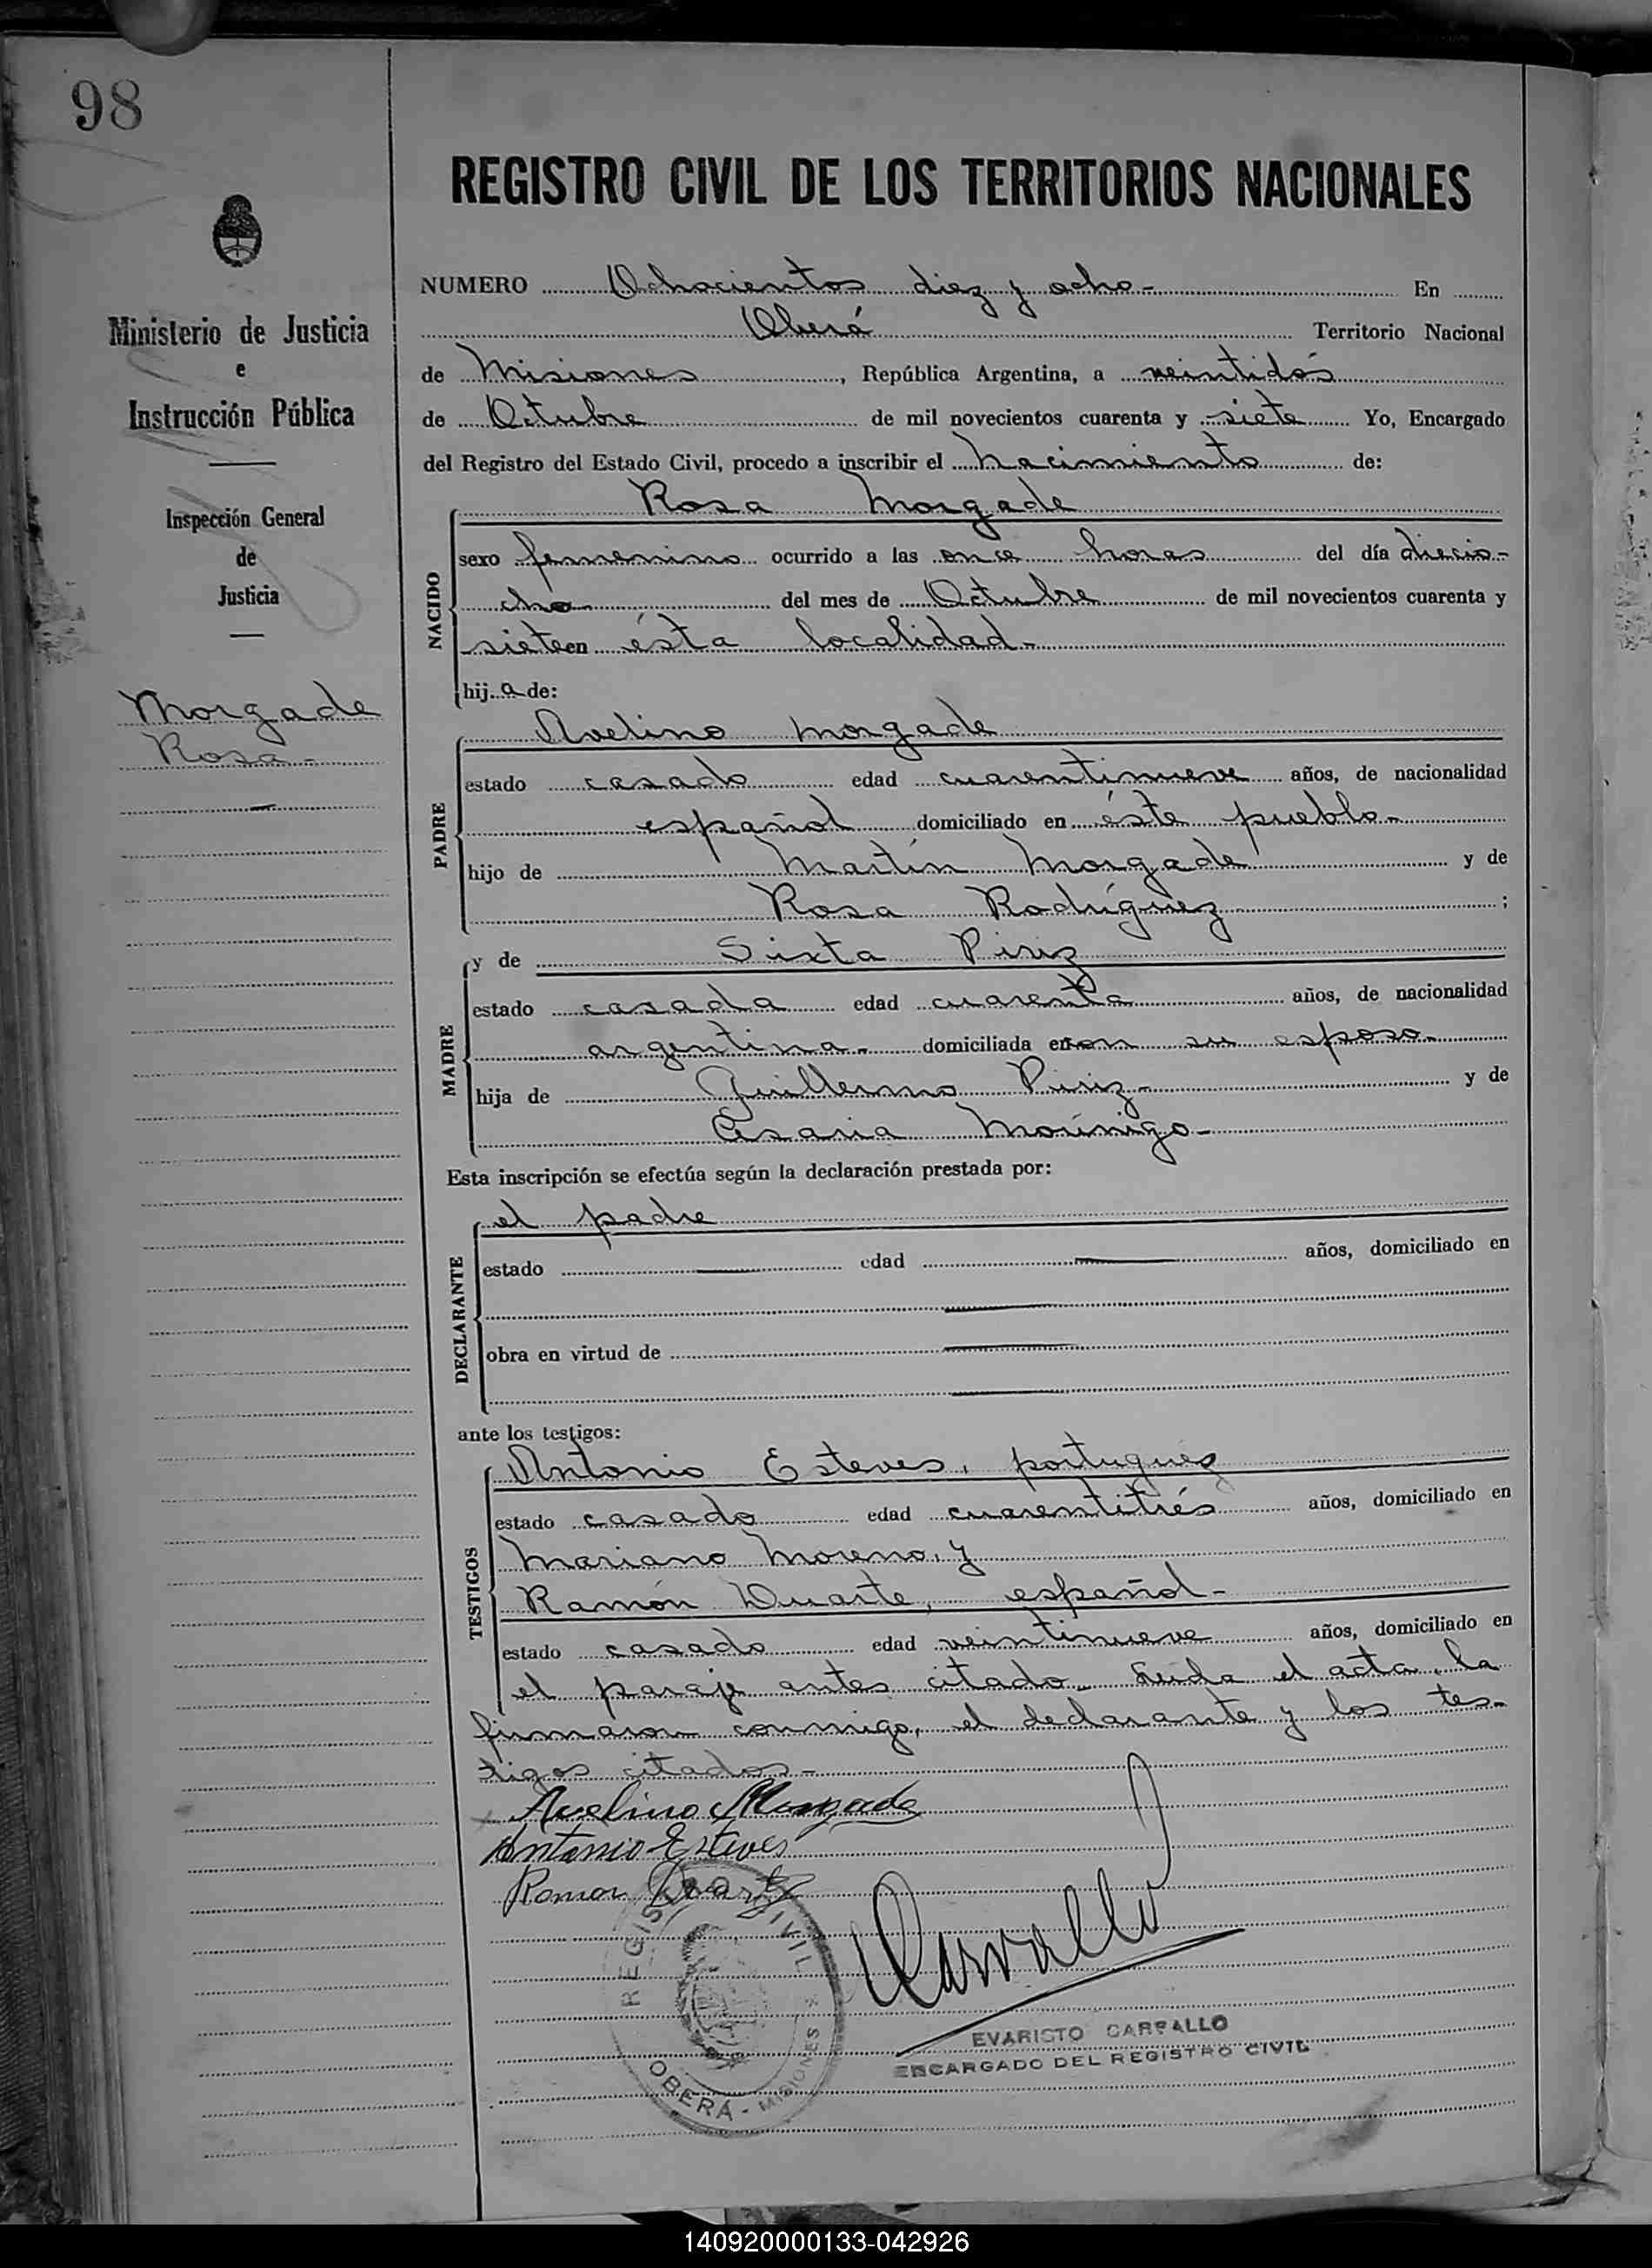 98
Ministerio de Justicia
e
Instrucción Pública
Inspección General
de
Justicia
Morgade
Rosa -
REGISTRO CIVIL DE LOS TERRITORIOS NACIONALES
NUMERO Ochocientos diez y ocho - En
Oberá Territorio Nacional
de Misiones, República Argentina, a veintidós
de Octubre de mil novecientos cuarenta y siete Yo, Encargado
del Registro del Estado Civil, procedo a inscribir el nacimiento de:
NACIDO
Rosa Morgade
sexo femenino ocurrido a las once horas del día diecio-
cho del mes de Octubre de mil novecientos cuarenta y
siete en ésta localidad -
hij a de:
PADRE
Avelino Morgade
estado casado edad cuarentinueve años, de nacionalidad
español domiciliado en éste pueblo -
hijo de Martín Morgade y de
Rosa Rodríguez ;
MADRE
y de Sixta Piriz
estado casada edad cuarenta años, de nacionalidad
argentina - domiciliada en con su esposo -
hija de Guillermo Piriz - y de
Cesaria Morínigo -
Esta inscripción se efectúa según la declaración prestada por:
DECLARANTE
el padre
estado edad años, domiciliado en
obra en virtud de
ante los testigos:
TESTIGOS
Antonio Esteves, portuguéz
estado casado edad cuarentitrés años, domiciliado en
Mariano Moreno, y
Ramón Duarte, español -
estado casado edad veintinueve años, domiciliado en
el paraje antes citado - Leída el acta, la
firmaron conmigo, el declarante y los tes-
tigos citados -
Avelino Morgade
Antonio Esteves
Ramon Duarte
REGISTRO CIVIL
OBERÁ - MISIONES
Carvallo
EVARISTO CARVALLO
ENCARGADO DEL REGISTRO CIVIL
140920000133-042926